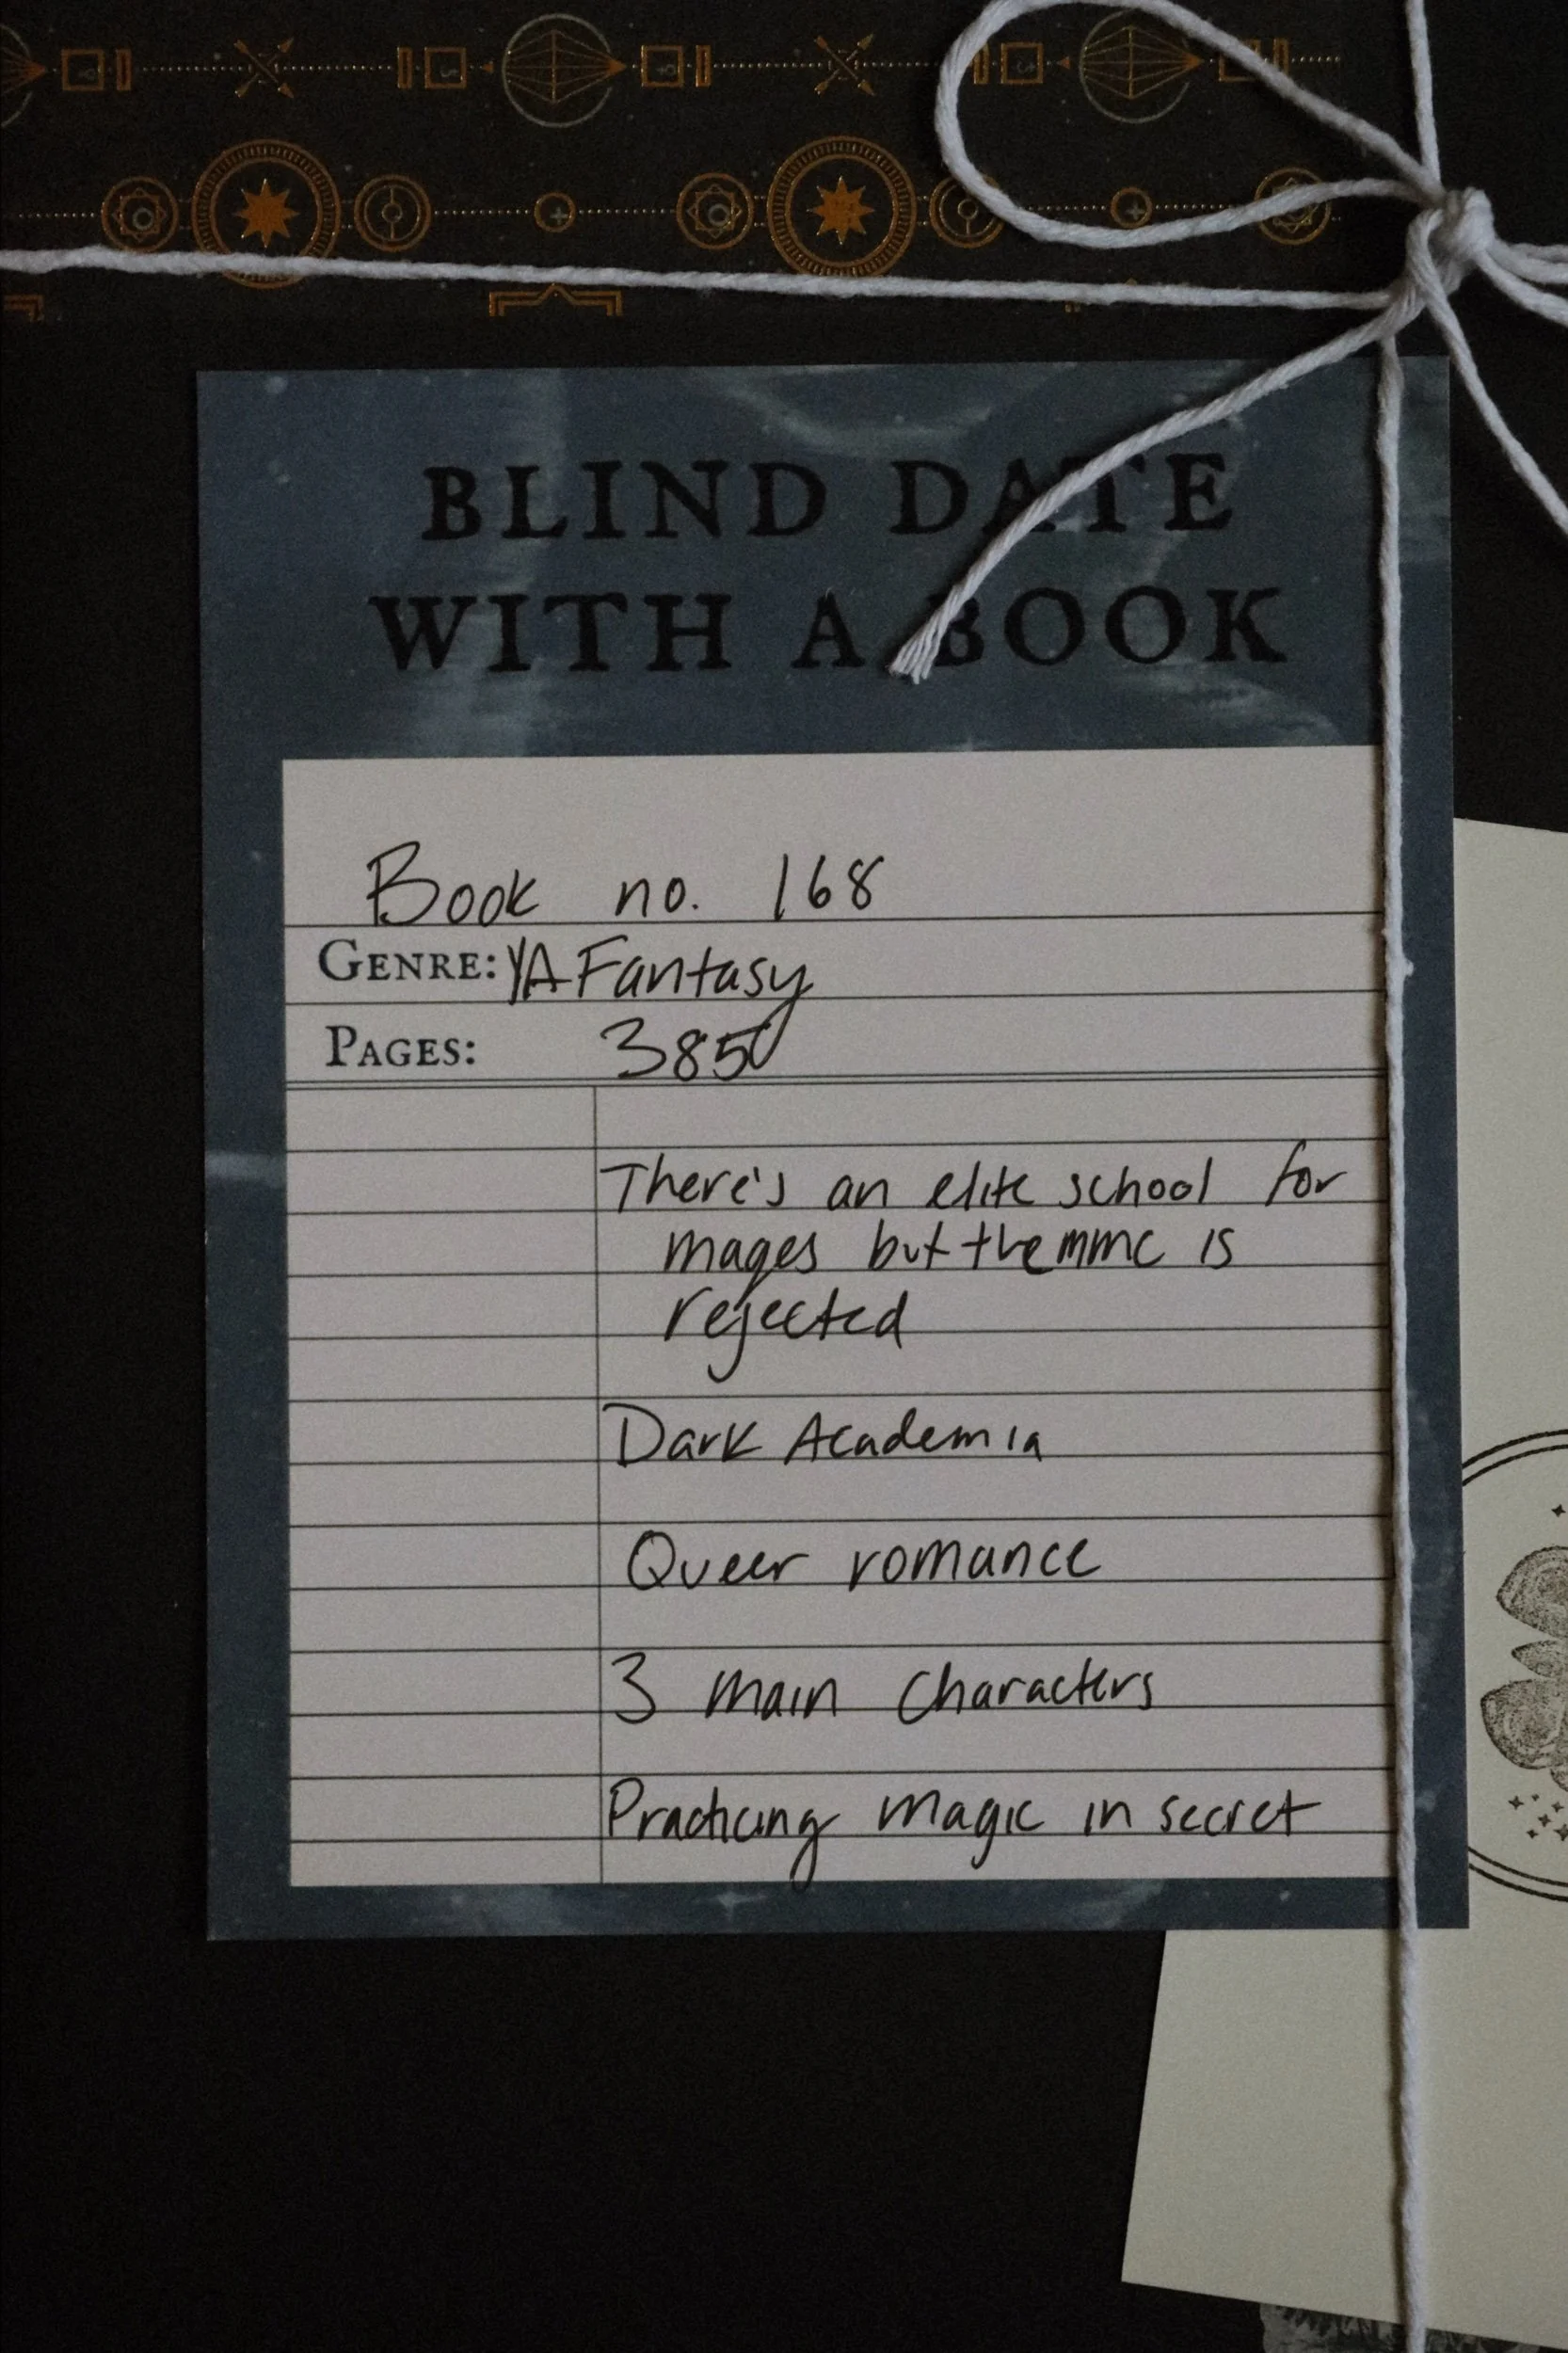 BLIND DATE
WITH A BOOK
Book no. 168
GENRE: YA Fantasy
PAGES: 385
There's an elite school for
mages but the mmc is
rejected
Dark Academia
Queer romance
3 main characters
Practicing magic in secret